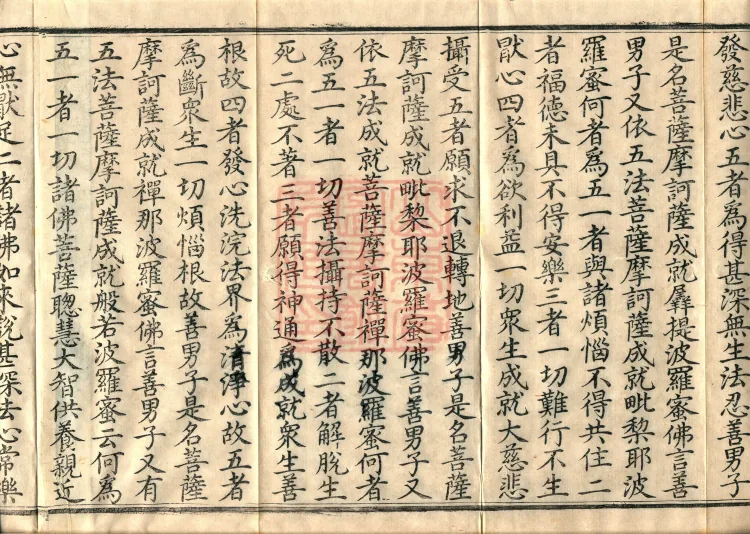 發慈悲心五者為得甚深無生法忍善男子
是名菩薩摩訶薩成就羼提波羅蜜佛言善
男子又依五法菩薩摩訶薩成就毗黎耶波
羅蜜何者為五一者與諸煩惱不得共住二
者福德未具不得安樂三者一切難行不生
猒心四者為欲利益一切衆生成就大慈悲
攝受五者願求不退轉地善男子是名菩薩
摩訶薩成就毗黎耶波羅蜜佛言善男子又
依五法成就菩薩摩訶薩禪那波羅蜜何者
為五一者一切善法攝持不散二者解脫生
死二處不著三者願得神通為成就衆生善
根故四者發心洗浣法界為清淨心故五者
為斷衆生一切煩惱根故善男子是名菩薩
摩訶薩成就禪那波羅蜜佛言善男子又有
五法菩薩摩訶薩成就般若波羅蜜云何為
五一者一切諸佛菩薩聰慧大智供養親近
心無猒足二者諸佛如來說甚深法心常樂